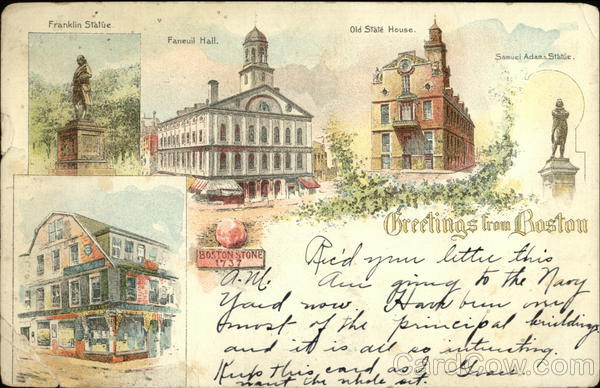 Franklin Statue
Faneuil Hall.
Old State House.
Samuel Adams Statue.
Greetings from Boston
BOSTON STONE
1737
Rec'd your letter this
A.M. Am going to the Navy
Yard now Have been over
most of the principal buildings
and it is all so interesting.
Keep this card as I
want the whole set.
CardCow.com